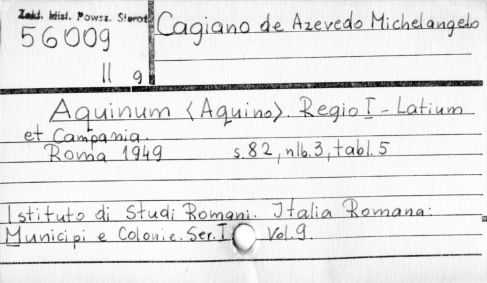 Zakł. Hist. Powsz. Staroż.
56009
II 9
Cagiano de Azevedo Michelangelo
Aquinum <Aquino>. Regio I - Latium
et Campania.
Roma 1949 s.82, nlb.3, tabl.5
Istituto di Studi Romani. Italia Romana:
Municipi e Colonie. Ser. I Vol. 9.